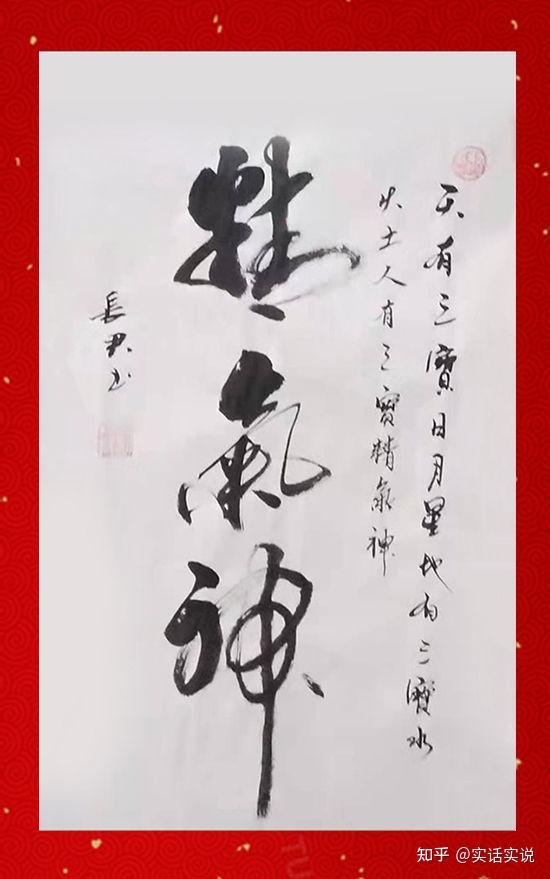 天有三寶日月星地有三寶水
火土人有三寶精氣神
精氣神
長君书
知乎 @实话实说